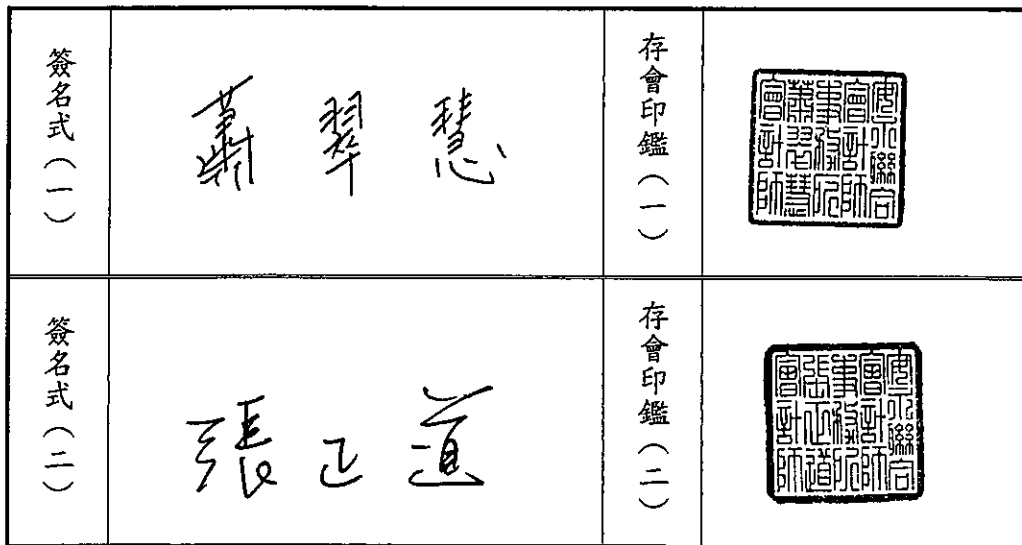 簽名式(一)
蕭翠慧
存會印鑑(一)
安永聯合
會計師
事務所
蕭翠慧
會計師
簽名式(二)
張正道
存會印鑑(二)
安永聯合
會計師
事務所
張正道
會計師